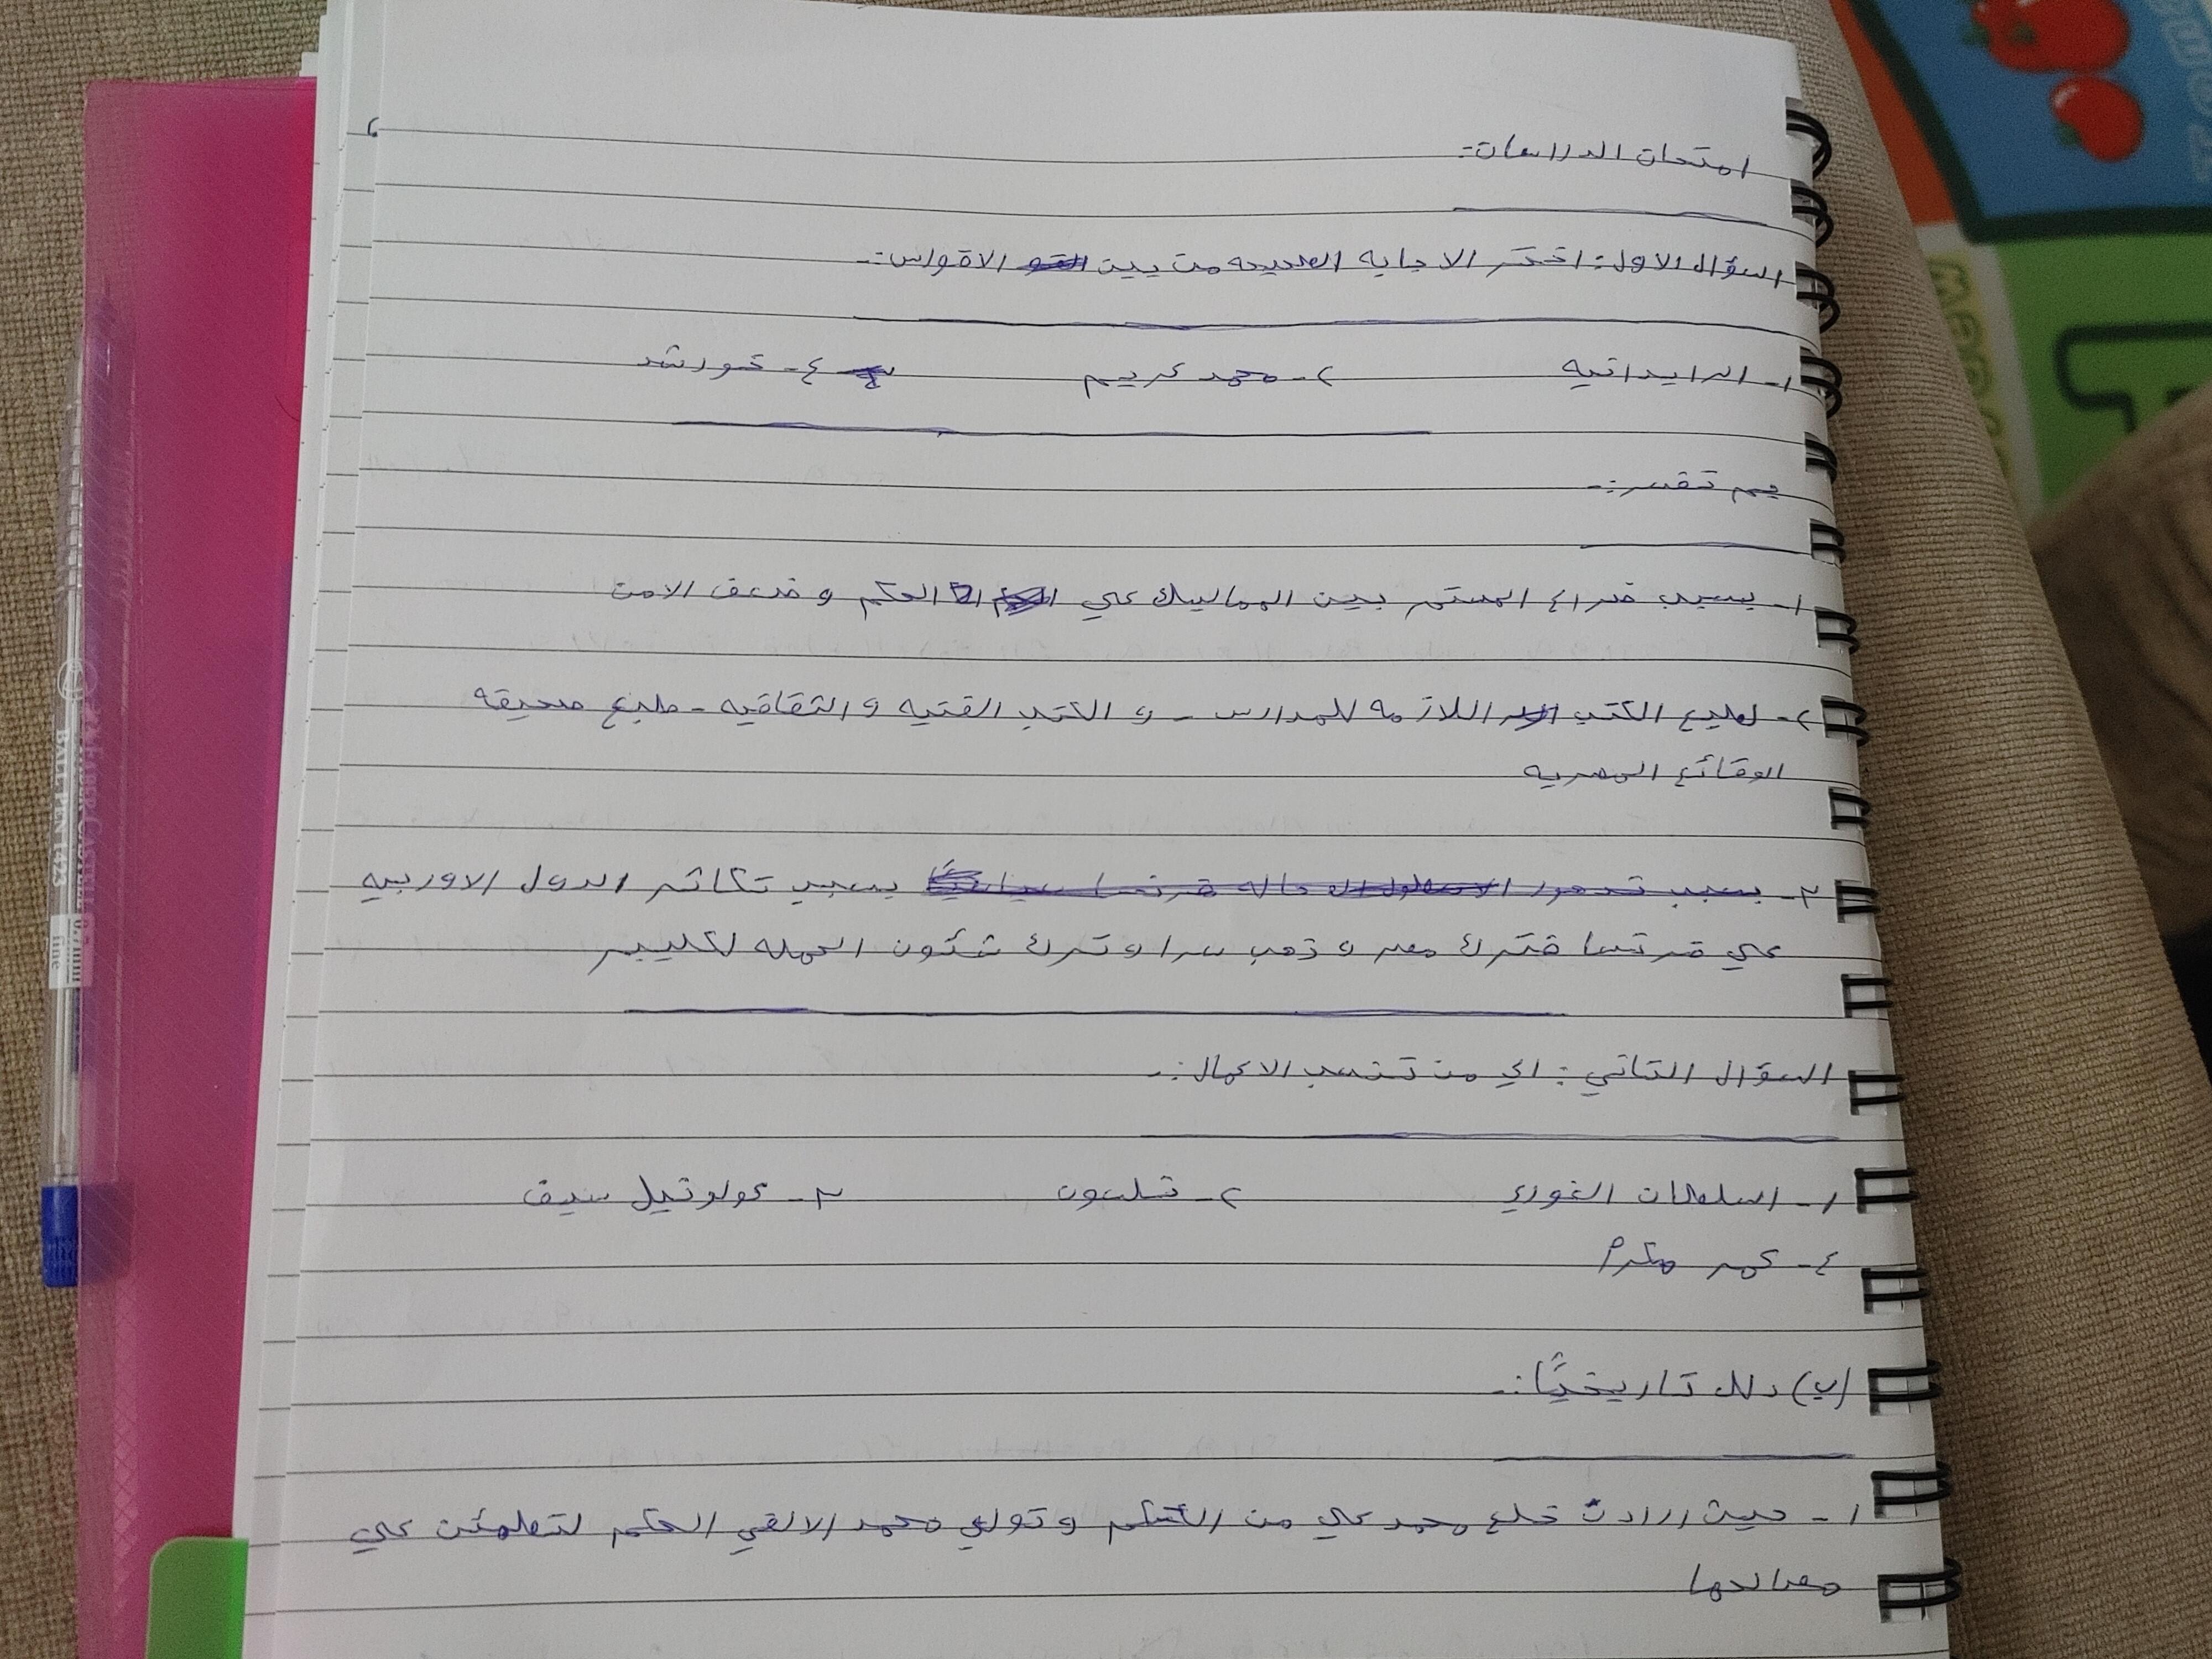 امتحان الدراسات:-
السؤال الاول: اختر الاجابه الصحيحه من بين الاقواس:-
١- الرايدانيه ٢- محمد كريم ٤- خورشد
بم تفسر:-
١- بسبب ضراع المستمر بين المماليك علي الحكم و ضعف الامن
٢- لطبع الكتب اللازمه للمدارس - و الكتب الفنيه و الثقافيه - طبع صحيفه
الوقائع المصريه
٣- بسبب تكاثر الدول الاوربيه
علي فرنسا فترك مصر و ذهب سرا و ترك شئون الحمله لكليبر
السؤال الثاني: الي من تنسب الاعمال:-
١- السلطان الغوري ٢- نلسون ٣- كولونيل سيف
٤- عمر مكرم
(ب) دلل تاريخيًا:-
١- حيث ارادت خلع محمد علي من الحكم و تولي محمد الالفي الحكم لتطمئن علي
مصالحها
BALL PEN 1423